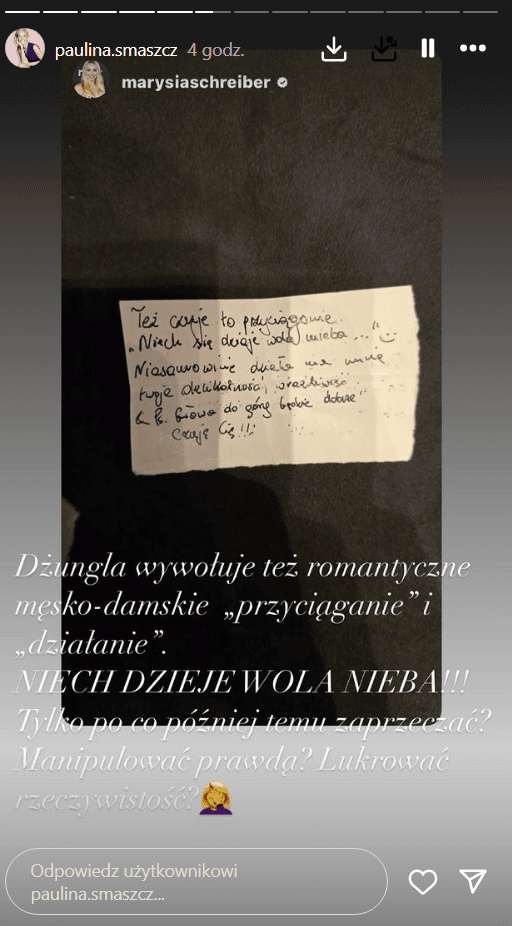 paulina.smaszcz 4 godz.
marysiaschreiber
Też czuje to przyciąganie.
"Niech się dzieje wola nieba..."
Niesamowicie działa na mnie
twoja delikatność, wrażliwość
Głowa do góry będzie dobrze"
Czuję Cię!!!
Dżungla wywołuje też romantyczne
męsko-damskie „przyciąganie” i
„działanie”.
NIECH DZIEJE WOLA NIEBA!!!
Tylko po co później temu zaprzeczać?
Manipulować prawdą? Lukrować
rzeczywistość?
Odpowiedz użytkownikowi
paulina.smaszcz...